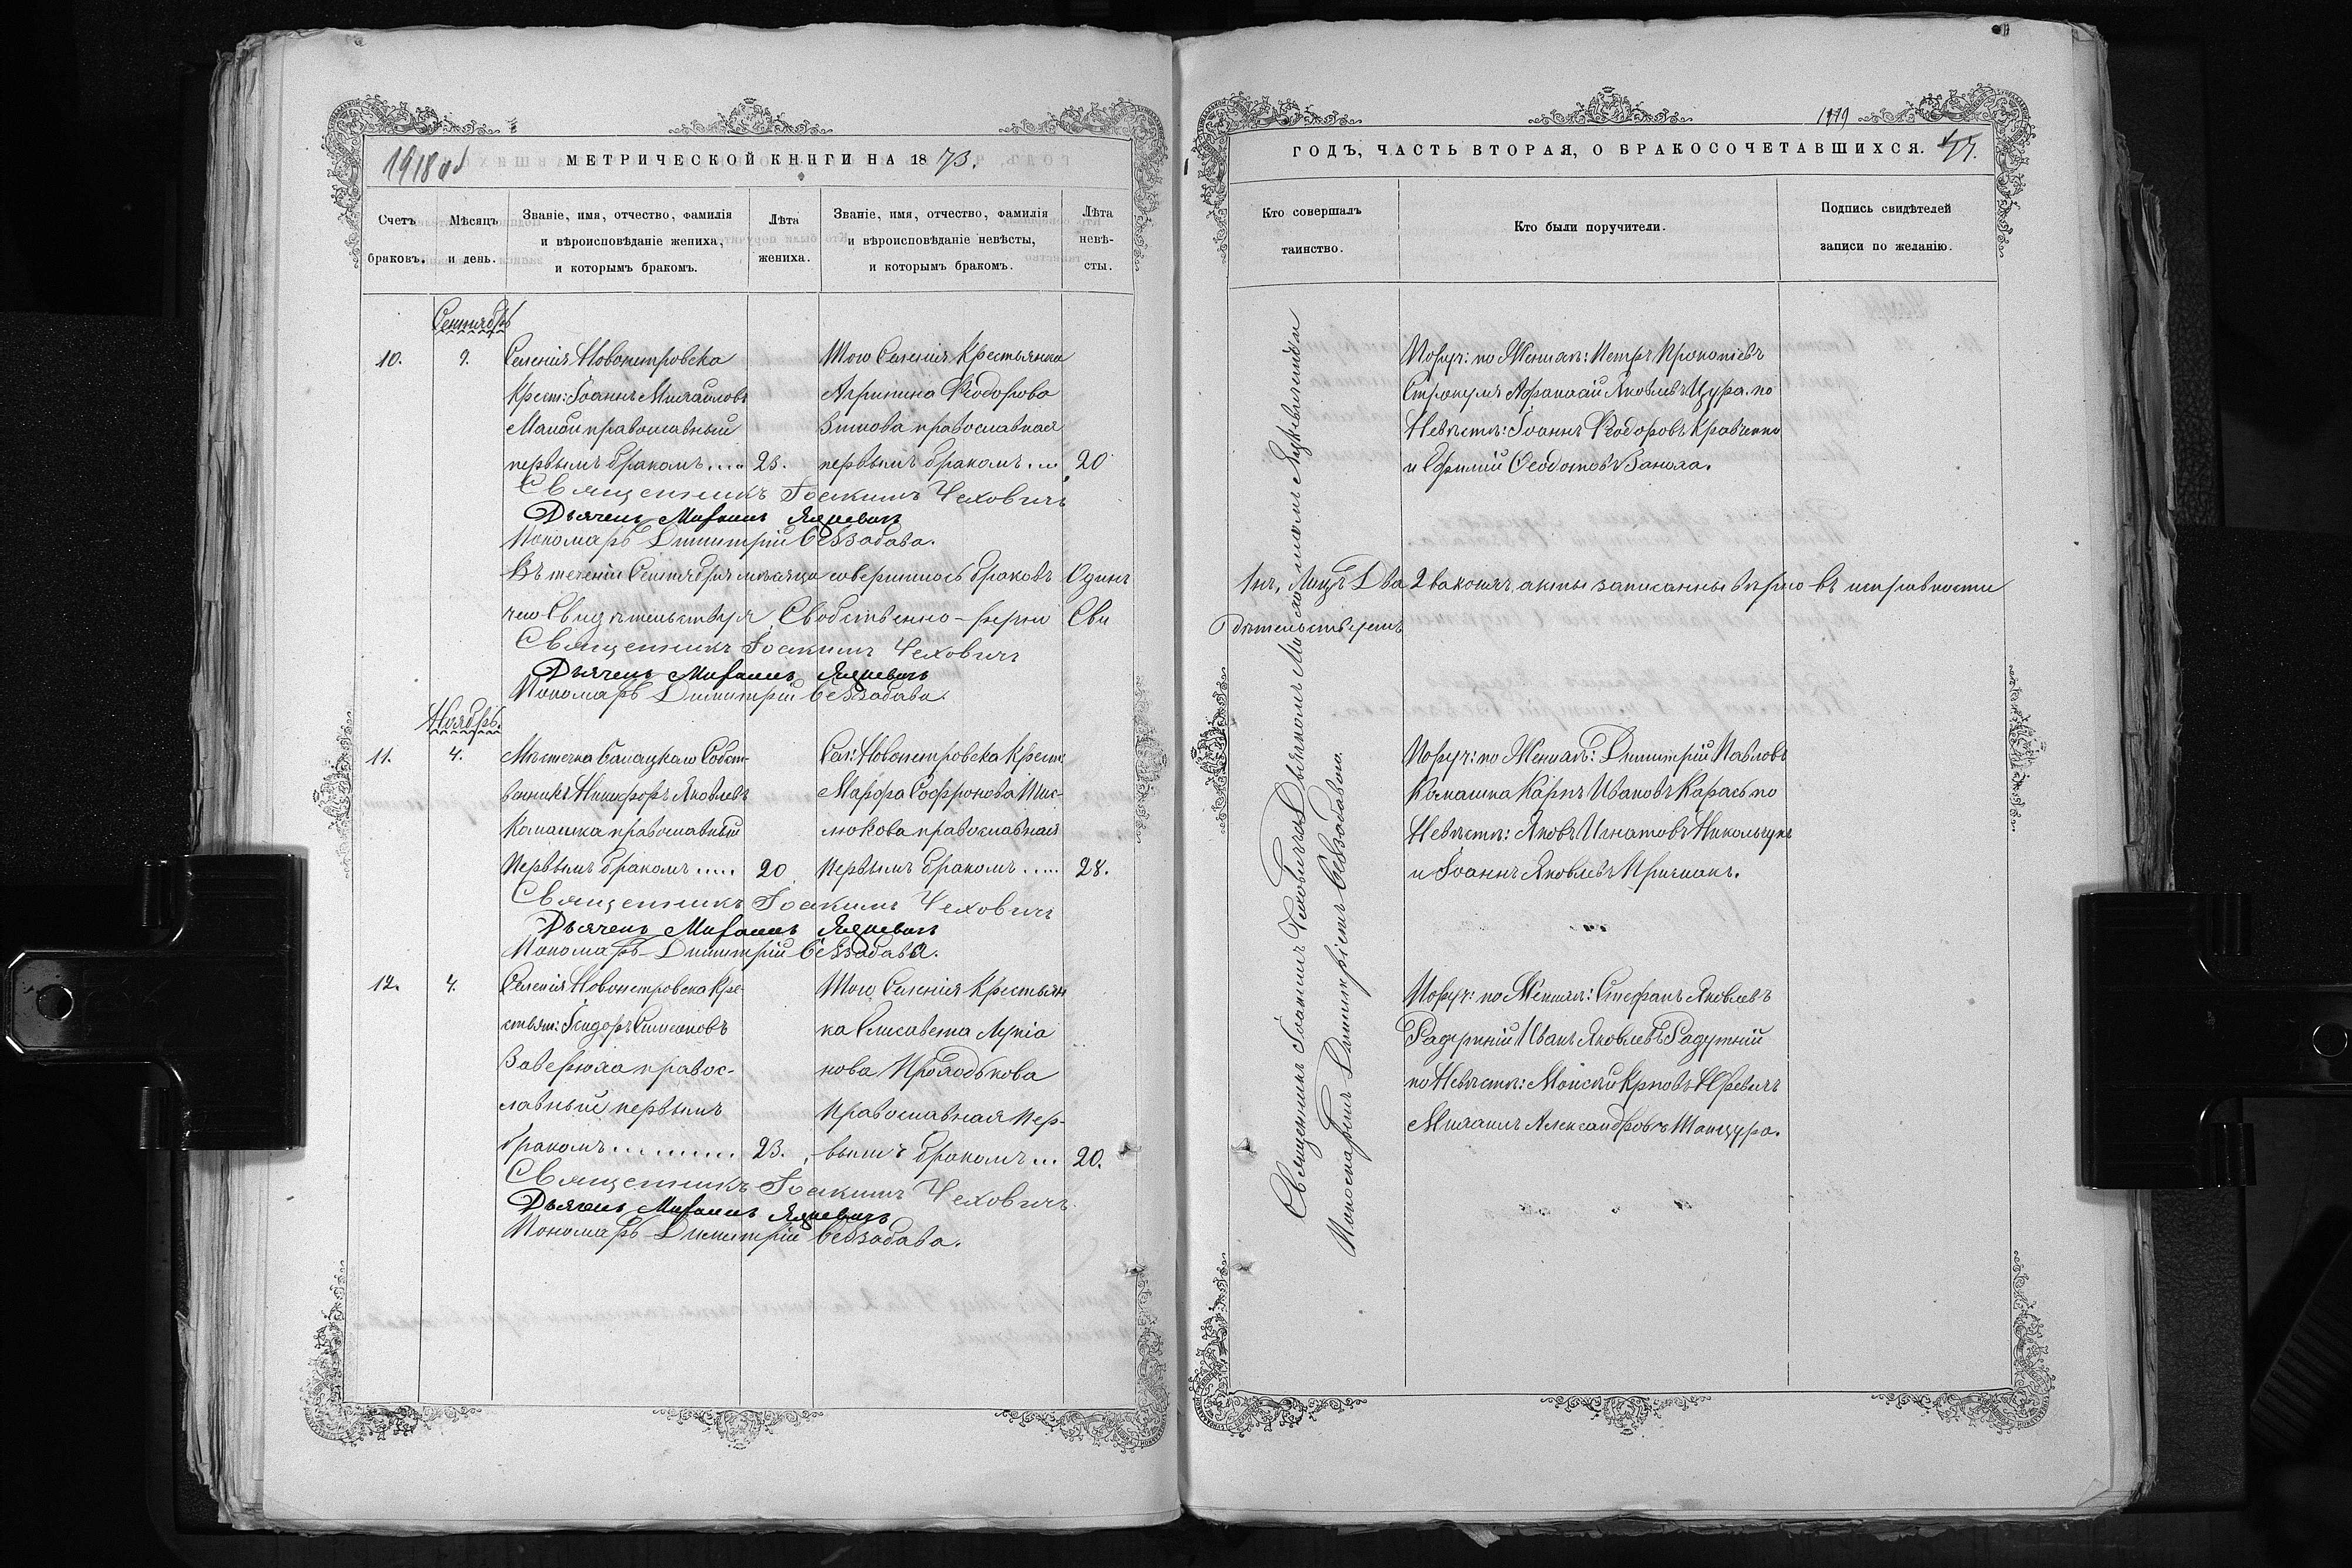 1918 об
МЕТРИЧЕСКОЙ КНИГИ НА 1873.
Счетъ браковъ.
Мѣсяцъ и день.
Званіе, имя, отчество, фамилія
и вѣроисповѣданіе жениха,
и которымъ бракомъ.
Лѣта
жениха.
Званіе, имя, отчество, фамилія
и вѣроисповѣданіе невѣсты,
и которымъ бракомъ.
Лѣта
невѣ-
сты.
Сентябрь
10. 9. Селенія Новопетровска
Крест: Іоаннъ Михайловъ
православный
первымъ бракомъ.... 23.
Того Селенія Крестьянка
Агрипина Ѳеодорова
православная
первымъ бракомъ... 20
Священникъ Іоакимъ Чеховичъ
Дьячекъ Михаилъ
Пономарь Димитрій Беззабава.
Въ теченіи Сентября мѣсяца совершилось браковъ Одинъ
чего Свидѣтельствуя Свойственно-ручно Сви
Священникъ Іоакимъ Чеховичъ
Дьячекъ Михаилъ
Пономарь Димитрій Беззабава.
Ноябрь.
11. 4. Мѣстечка Собст-
венникъ Никифоръ Яковлевъ
Камашка православный
Первымъ бракомъ..... 20.
Сел: Новопетровска Крест:
Марфа Софронова
православная
Первымъ бракомъ..... 28.
Священникъ Іоакимъ Чеховичъ
Дьячекъ Михаилъ
Пономарь Димитрій Беззабава.
12. 4. Селенія Новопетровска Кре-
стьян: Ісидоръ Симеоновъ
Заверюха правос-
лавный первымъ
бракомъ............ 23.
Того Селенія Крестьян
ка Елисавета Лукіа
нова
Православная Пер-
вымъ бракомъ... 20.
Священникъ Іоакимъ Чеховичъ
Дьячекъ Михаилъ
Пономарь Димитрій Беззабава.
ГОДЪ, ЧАСТЬ ВТОРАЯ, О БРАКОСОЧЕТАВШИХСЯ.
Кто совершалъ
таинство.
Кто были поручители.
Подпись свидѣтелей
записи по желанію.
Священникъ Іоакимъ Чеховичъ съ Дьячкомъ Михаиломъ
Пономаремъ Димитріемъ Беззабавою.
Поруч: по Женихѣ: Петръ Прокопіевъ
Аѳанасій Яковлевъ Цура. по
Невѣстѣ: Іоаннъ Ѳеодоровъ Кравченко
и Ефимій Ѳеодотовъ
Лицъ Два 2 каковы акты записанны вѣрно въ исправности
дѣтельствуемъ
Поруч: по Женихѣ: Димитрій Павловъ
Камашка Карпъ Ивановъ Карась по
Невѣстѣ: Яковъ Игнатовъ Никольчукъ
и Іоаннъ Яковлевъ Пригнакъ.
Поруч: по Женихѣ: Стефанъ Яковлевъ
Радутній Иванъ Яковлевъ Радутній
по Невѣстѣ: Моисей
Михаилъ Александровъ Танцура.